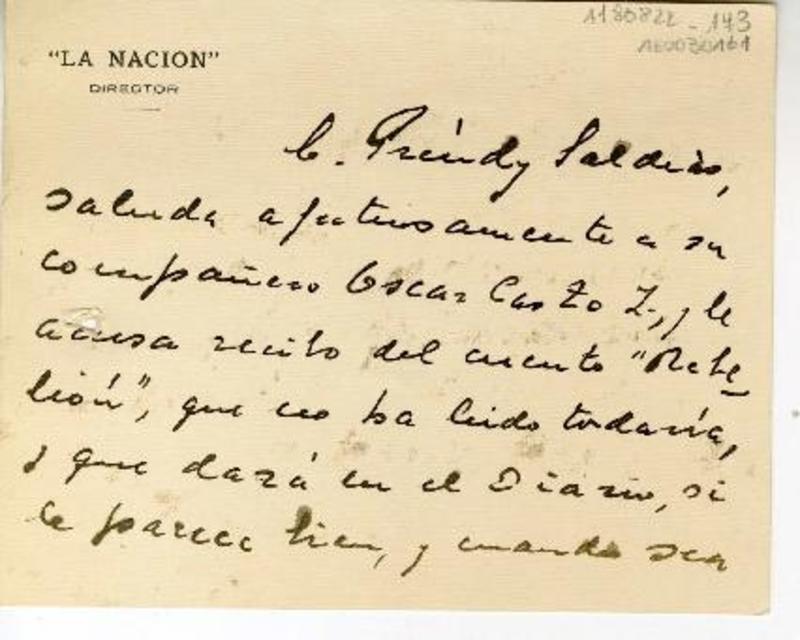 1185822-143
180030161
"LA NACION"
DIRECTOR
C. Préndy Saldías,
saluda afectuosamente a su
compañero Oscar Castro Z., y le
acusa recibo del cuento "Rebe_
lión", que no ha leido todavía,
y que dará en el Diario, si
le parece bien, y cuando sea